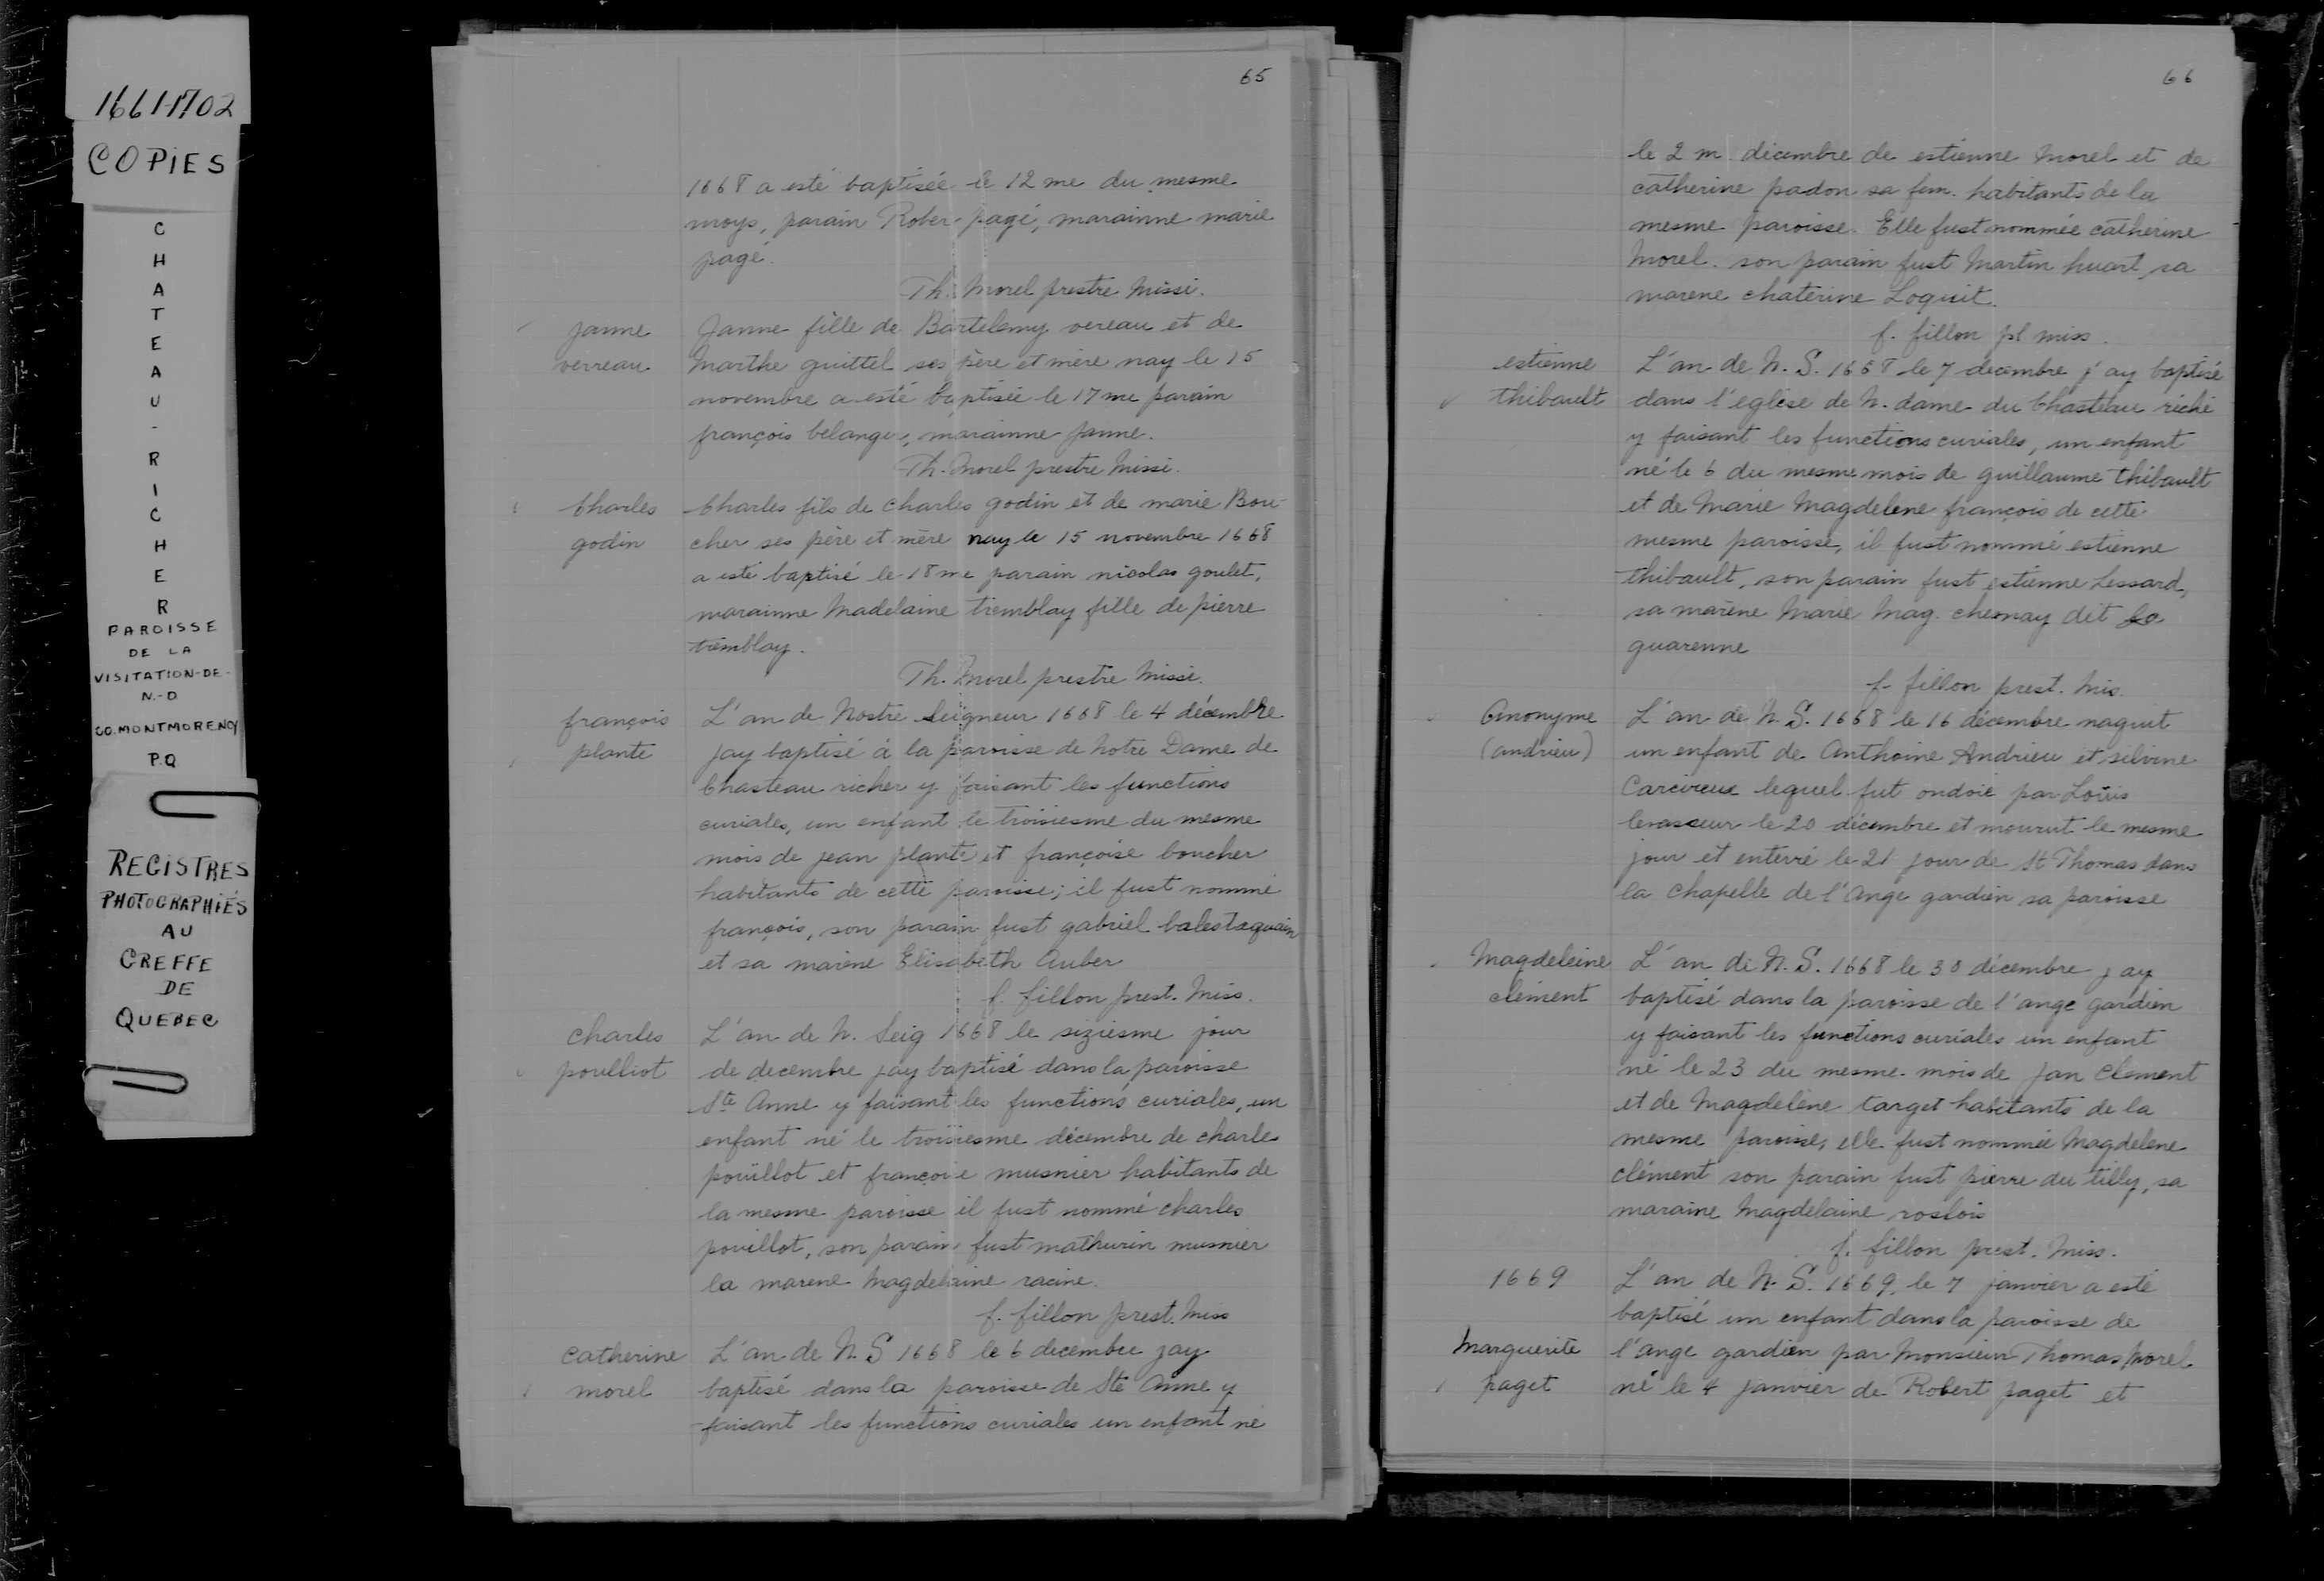 1661-1702
COPIES
CHATEAU-RICHER
PAROISSE
DE LA
VISITATION-DE-
N.-D
CO. MONTMORENCY
P.Q
REGISTRES
PHOTOGRAPHIÉS
AU
GREFFE
DE
QUEBEC
65
1668 a esté baptisée le 12 me du mesme
moys, parain Rober pagé, marainne marie
pagé.
Th. Morel prestre Missi.
janne verreau
Janne fille de Bartelemy vereau et de
Marthe guittel ses père et mère nay le 15
novembre a esté baptisée le 17 me parain
françois belanger, marainne janne.
Th. Morel prestre Missi.
Charles godin
Charles fils de Charles godin et de marie Bou-
cher ses père et mère nay le 15 novembre 1668
a esté baptisé le 18 me parain nicolas goulet,
marainne Madelaine tremblay fille de pierre
tremblay.
Th. Morel prestre Missi.
françois plante
L'an de Nostre Seigneur 1668 le 4 décembre
jay baptisé à la paroisse de Notre Dame de
Chasteau richer y faisant les functions
curiales, un enfant le troisiesme du mesme
mois de jean plante et françoise boucher
habitants de cette paroisse; il fust nommé
françois, son parain fust gabriel balestaguain
et sa marène Elisabeth Auber
f. fillon prest. Miss.
charles poulliot
L'an de N. Seig 1668 le siziesme jour
de decembre jay baptisé dans la paroisse
Ste Anne y faisant les functions curiales, un
enfant né le troisiesme décembre de charles
pouillot et françoise musnier habitants de
la mesme paroisse il fust nommé charles
pouillot, son parain fust mathurin musnier
la marene Magdelaine racine.
f. fillon prest. Miss
Catherine morel
L'an de N. S 1668 le 6 decembre jay
baptisé dans la paroisse de Ste Anne y
faisant les functions curiales un enfant né
66
le 2 m. décembre de estienne Morel et de
catherine padon sa fem. habitants de la
mesme paroisse. Elle fust nommée catherine
Morel. son parain fust Martin huart, sa
marene chaterine Loquit.
f. fillon pt miss.
estienne thibault
L'an de N. S. 1668 le 7 decembre j'ay baptisé
dans l'eglise de N. dame du Chasteau riche
y faisant les functions curiales, un enfant
né le 6 du mesme mois de guillaume thibault
et de Marie Magdelene françois de cette
mesme paroisse, il fust nommé estienne
thibault, son parain fust estienne Lessard,
sa marène Marie Mag. chesnay dit La
guarenne
f. fillon prest. Mis.
Anonyme (andrieu)
L'an de N. S. 1668 le 16 décembre naquit
un enfant de Anthoine Andrieu et silvine
Carcireux lequel fut ondoié par Louis
levasseur le 20 décembre et mourut le mesme
jour et enterré le 21 jour de St Thomas dans
la chapelle de l'Ange gardien sa paroisse
Magdeleine clément
L'an de N. S. 1668 le 30 décembre jay
baptisé dans la paroisse de l'ange gardien
y faisant les functions curiales un enfant
né le 23 du mesme mois de Jan Clement
et de Magdelene target habitants de la
mesme paroisse, elle fust nommée Magdelene
clément son parain fust pierre du tilly, sa
maraine Magdelaine roslois
f. fillon prest. Miss.
1669
L'an de N. S. 1669, le 7 janvier a esté
baptisé un enfant dans la paroisse de
Marguerite paget
l'ange gardien par Monsieur Thomas Morel
né le 4 janvier de Robert paget et